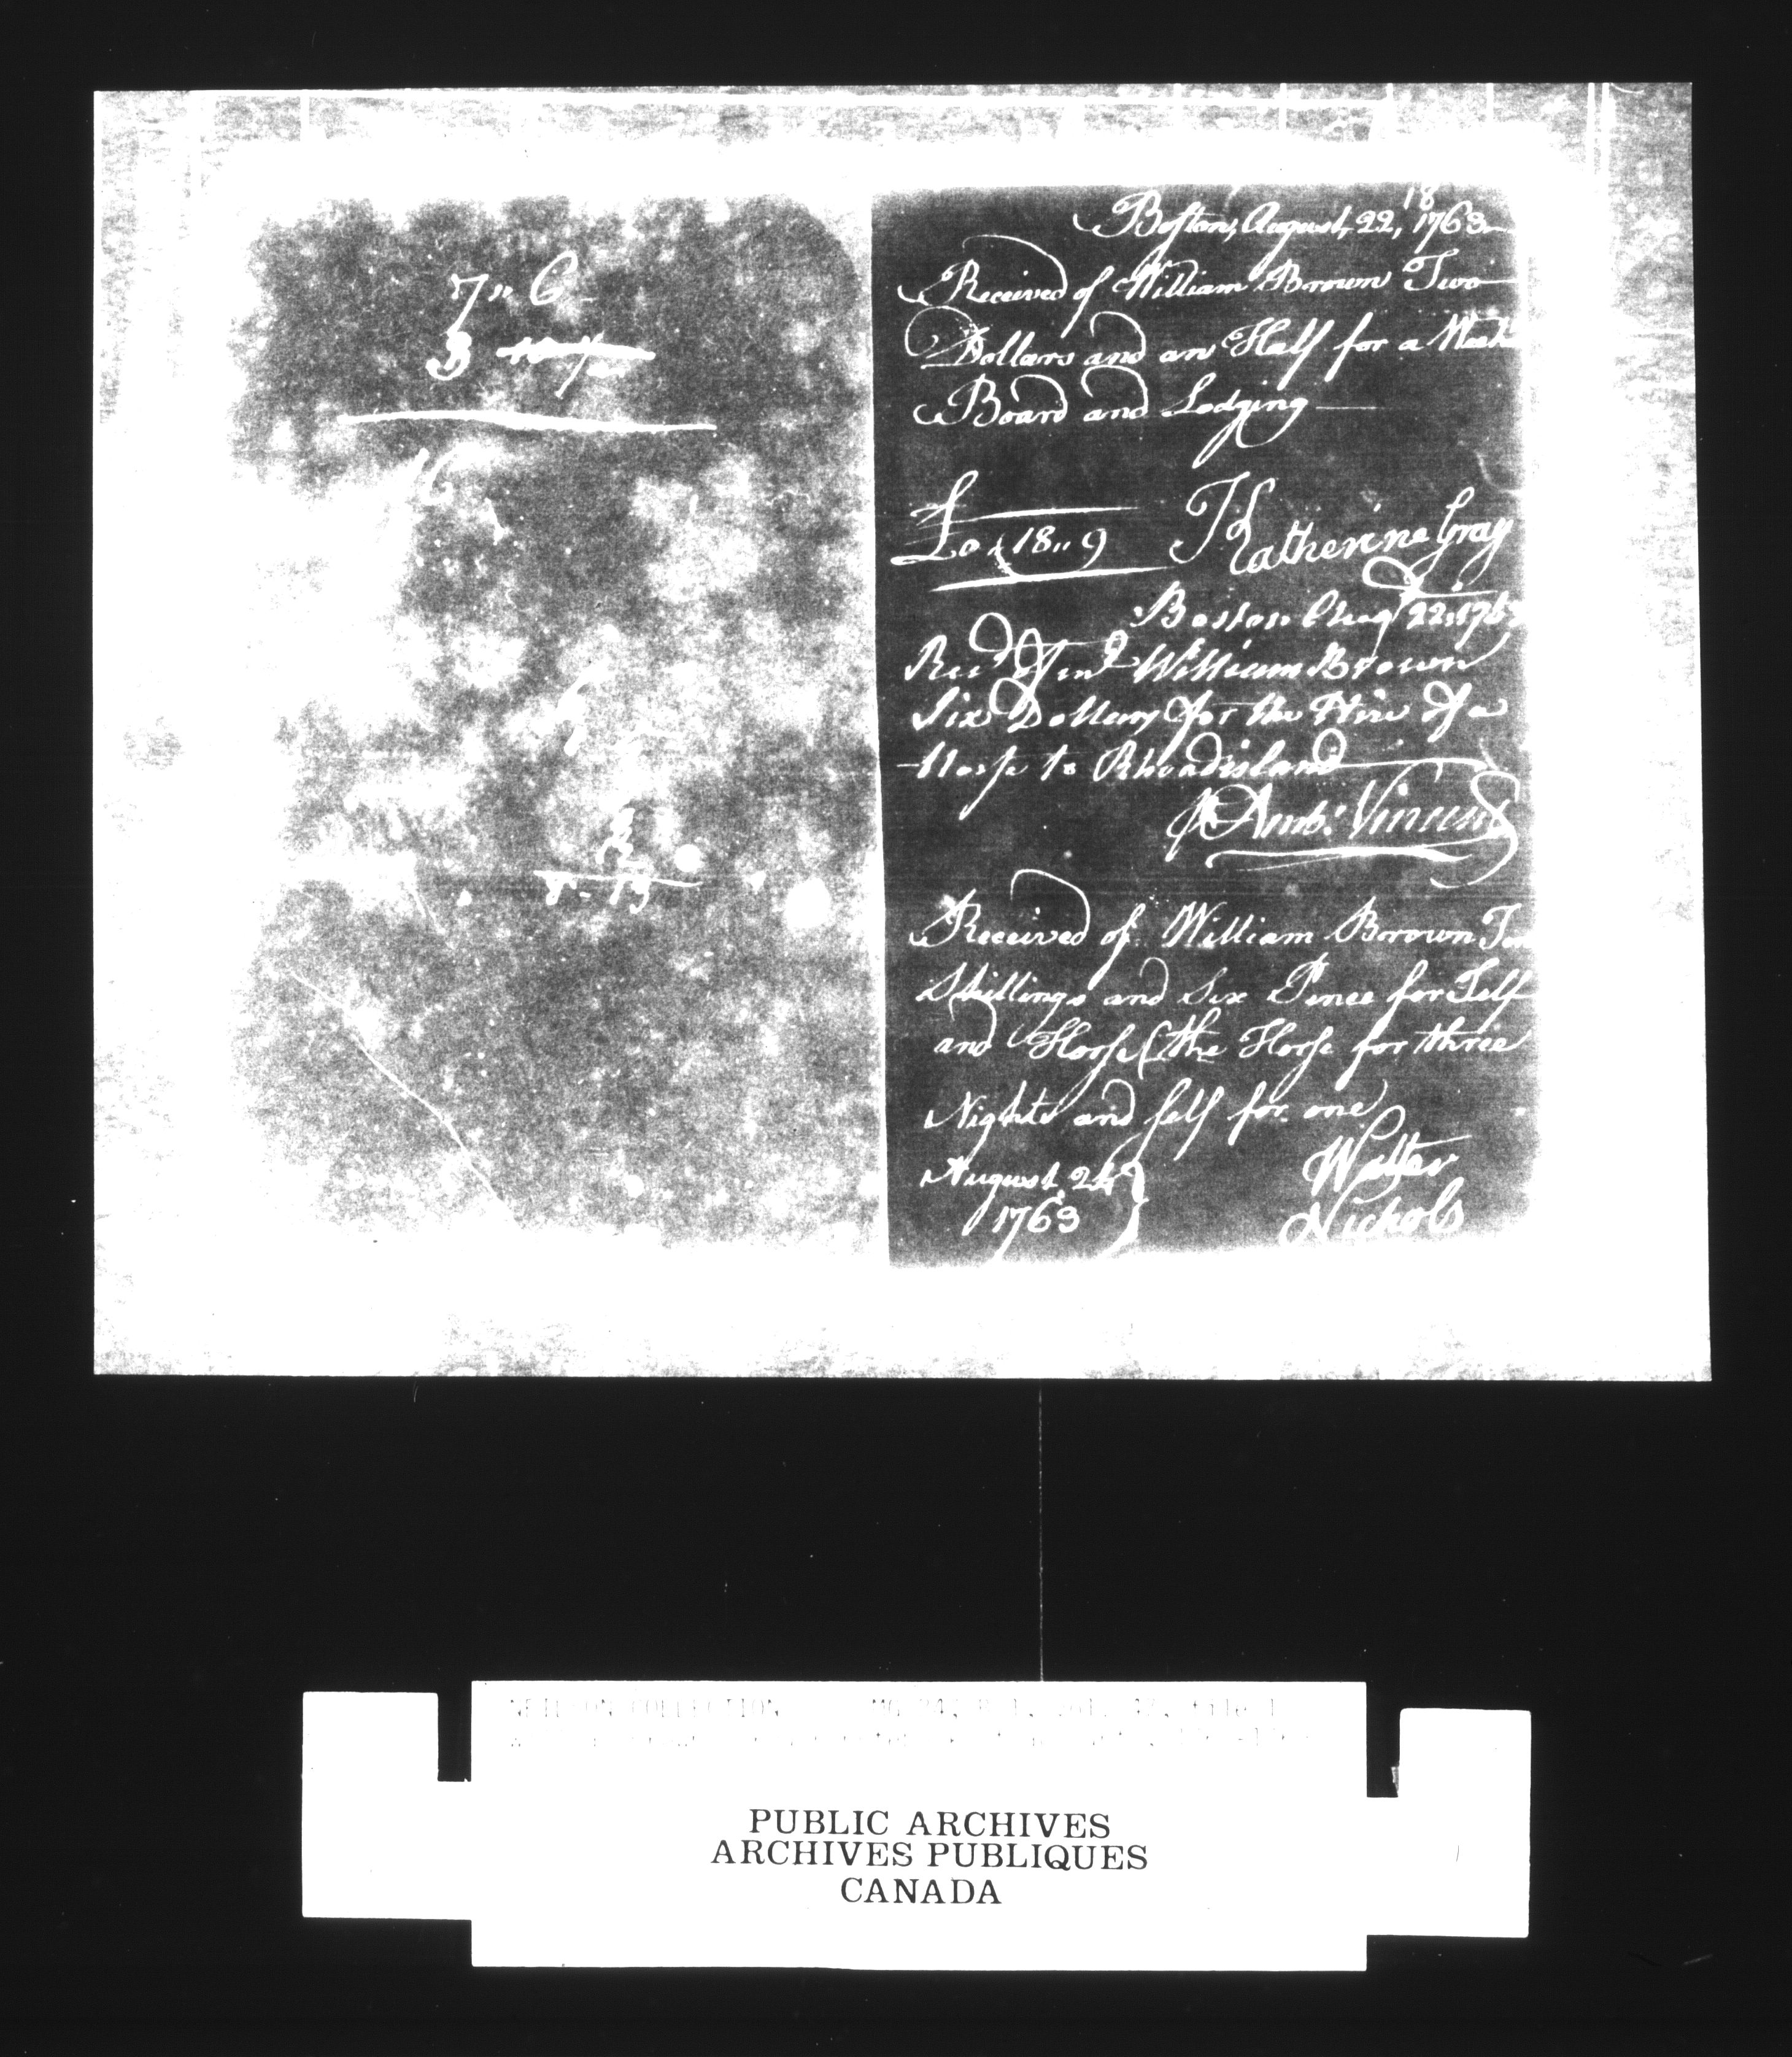 7" 6
3
16
18
Boston, August, 22, 1763
Received of William Brown Two
Dollars and an Half for a Week
Board and Lodging
£0, 18" 9 Katherine Gray
Boston Aug 22 1763
Recd of William Brown
Six Dollars for the Hire of a
Horse to Rhoadisland
Ambs. Vincent
Received of William Brown Ten
Shillings and Six Pence for Self
and Horse (the Horse for three
Nights and self for one
August 24
1763
Walter
Nichols
NEILSON COLLECTION MG 24, B 1, vol. file 1
PUBLIC ARCHIVES
ARCHIVES PUBLIQUES
CANADA